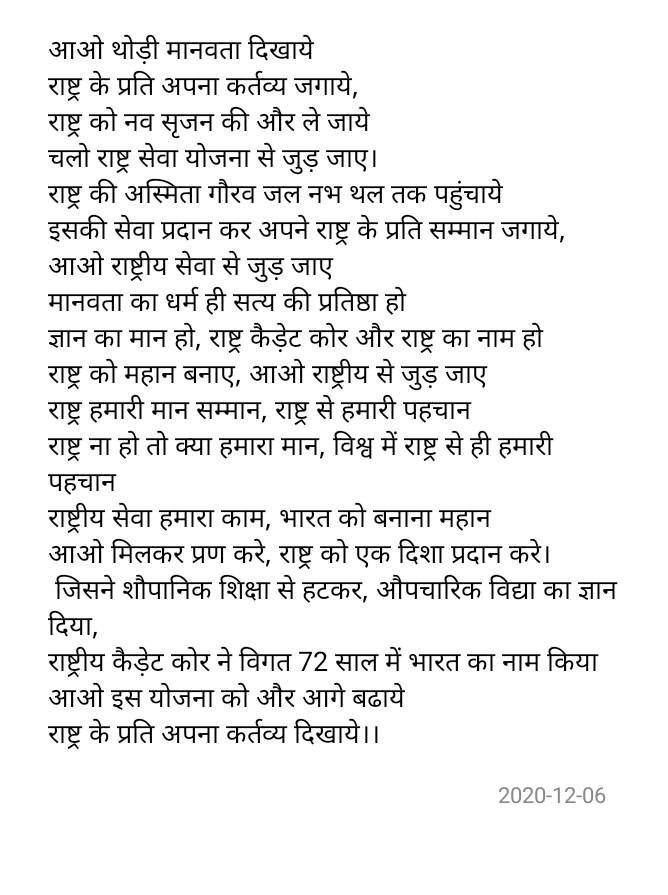 आओ थोड़ी मानवता दिखाये
राष्ट्र के प्रति अपना कर्तव्य जगाये,
राष्ट्र को नव सृजन की और ले जाये
चलो राष्ट्र सेवा योजना से जुड़ जाए।
राष्ट्र की अस्मिता गौरव जल नभ थल तक पहुंचाये
इसकी सेवा प्रदान कर अपने राष्ट्र के प्रति सम्मान जगाये,
आओ राष्ट्रीय सेवा से जुड़ जाए
मानवता का धर्म ही सत्य की प्रतिष्ठा हो
ज्ञान का मान हो, राष्ट्र कैड़ेट कोर और राष्ट्र का नाम हो
राष्ट्र को महान बनाए, आओ राष्ट्रीय से जुड़ जाए
राष्ट्र हमारी मान सम्मान, राष्ट्र से हमारी पहचान
राष्ट्र ना हो तो क्या हमारा मान, विश्व में राष्ट्र से ही हमारी
पहचान
राष्ट्रीय सेवा हमारा काम, भारत को बनाना महान
आओ मिलकर प्रण करे, राष्ट्र को एक दिशा प्रदान करे।
जिसने शौपानिक शिक्षा से हटकर, औपचारिक विद्या का ज्ञान
दिया,
राष्ट्रीय कैड़ेट कोर ने विगत 72 साल में भारत का नाम किया
आओ इस योजना को और आगे बढाये
राष्ट्र के प्रति अपना कर्तव्य दिखाये।।
2020-12-06